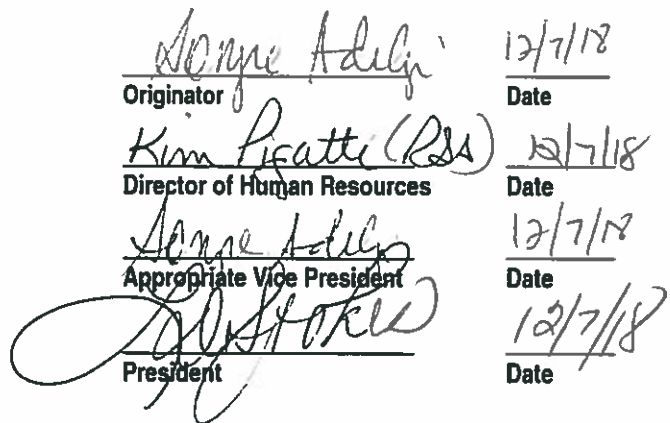 12/7/18
Originator Date
Kim Pigatti (RSS) 12/7/18
Director of Human Resources Date
12/7/18
Appropriate Vice President Date
12/7/18
President Date